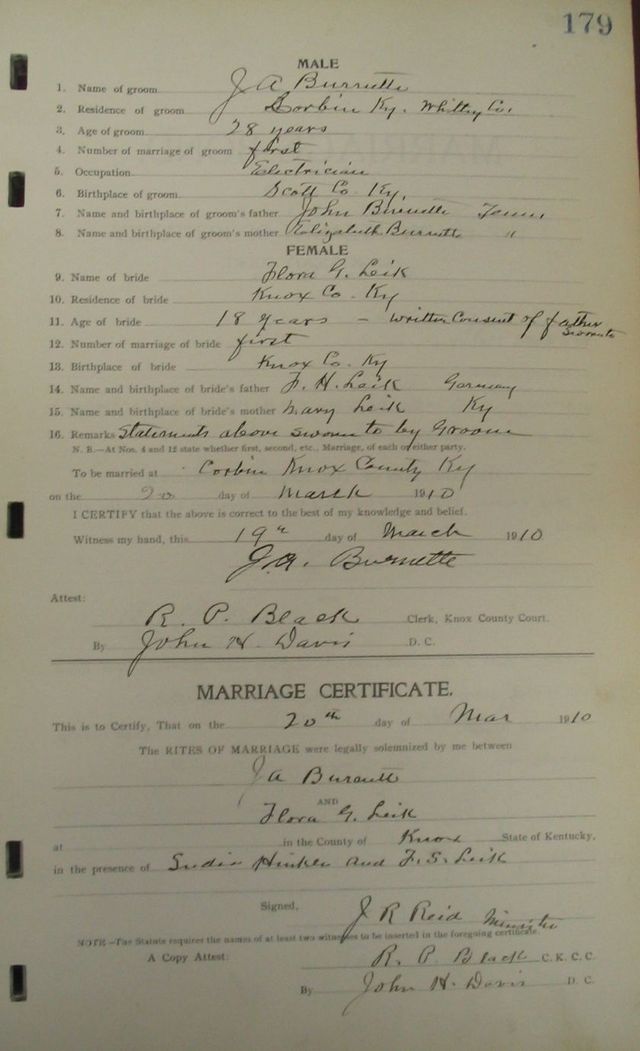 179
MALE
1. Name of groom J A Burnette
2. Residence of groom Corbin Ky. Whitley Co.
3. Age of groom 28 years
4. Number of marriage of groom first
5. Occupation Electrician
6. Birthplace of groom Scott Co Ky.
7. Name and birthplace of groom's father John Burnette Tenn
8. Name and birthplace of groom's mother Elizabeth Burnette "
FEMALE
9. Name of bride Flora G. Leik
10. Residence of bride Knox Co. Ky
11. Age of bride 18 years – written Consent of father
12. Number of marriage of bride first
13. Birthplace of bride Knox Co. Ky
14. Name and birthplace of bride's father F. H. Leik Germany
15. Name and birthplace of bride's mother Mary Leik Ky
16. Remarks Statements above sworn to by Groom
N. B.—At Nos. 4 and 12 state whether first, second, etc., Marriage, of each or either party.
To be married at Corbin Knox County Ky
on the 20 day of March 1910
I CERTIFY that the above is correct to the best of my knowledge and belief.
Witness my hand, this 19th day of March 1910
J. A. Burnette
Attest:
R. P. Black Clerk, Knox County Court.
By John H. Davis D. C.
MARRIAGE CERTIFICATE.
This is to Certify, That on the 20th day of Mar 1910
The RITES OF MARRIAGE were legally solemnized by me between
J A Burnette
AND
Flora G. Leik
at in the County of Knox State of Kentucky,
in the presence of and F. S. Leik
Signed, J R Reid Minister
NOTE—The Statute requires the names of at least two witnesses to be inserted in the foregoing certificate.
A Copy Attest: R. P. Black C. K. C. C.
By John H. Davis D. C.